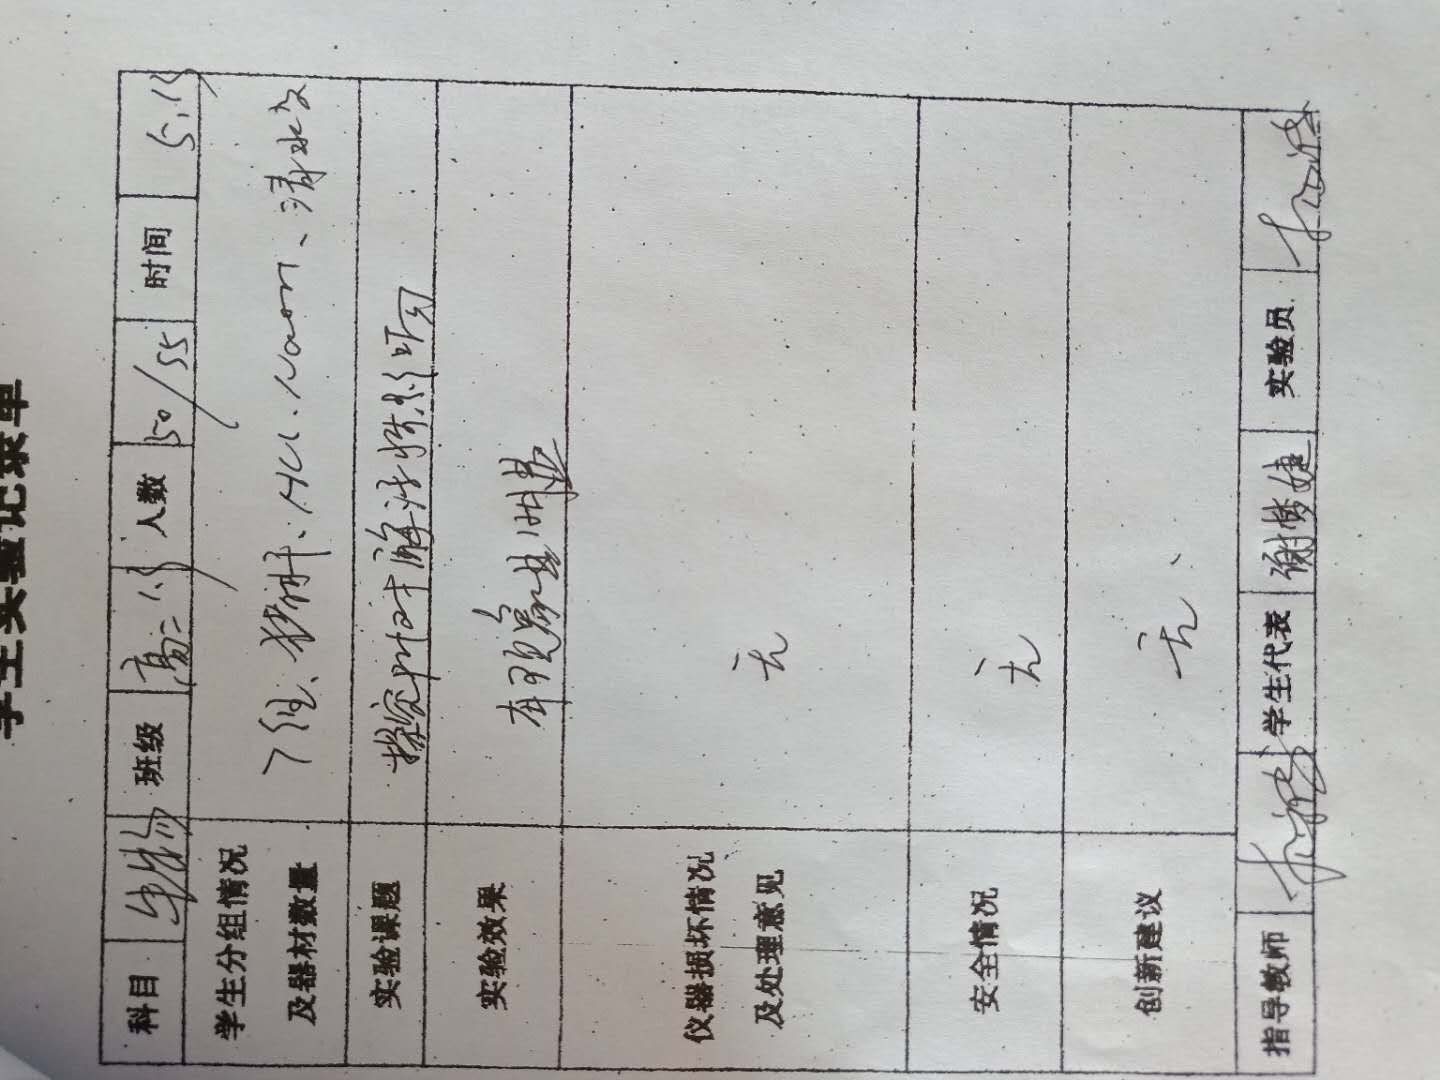 学生实验记录单
科目 生物 班级 高二 人数 50/55 时间 5.15
学生分组情况
及器材数量
7组、猪肝、HCl、NaOH、清水
实验课题 探究pH对酶活性影响
实验效果 有现象且明显
仪器损坏情况
及处理意见
无
安全情况 无
创新建议 无、
指导教师 学生代表 谢梦婕 实验员